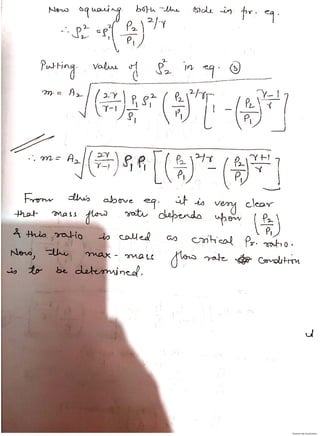 Now squaring both the side in pr. eq.
∴ ρ₂² = ρ₁² (P₂/P₁)^2/γ
Putting value of ρ₂² in eq. ③
m = A₂ √( (2γ/γ-1) P₁/ρ₁ ρ₁² (P₂/P₁)^2/γ [1 - (P₂/P₁)^γ-1/γ] )
∴ m = A₂ √( (2γ/γ-1) ρ₁ P₁ [(P₂/P₁)^2/γ - (P₂/P₁)^γ+1/γ] )
From this above eq. it is very clear
that mass flow rate depends upon (P₂/P₁)
& this ratio is called as critical Pr. ratio.
Now, the max-mass flow rate condition
is to be determined.